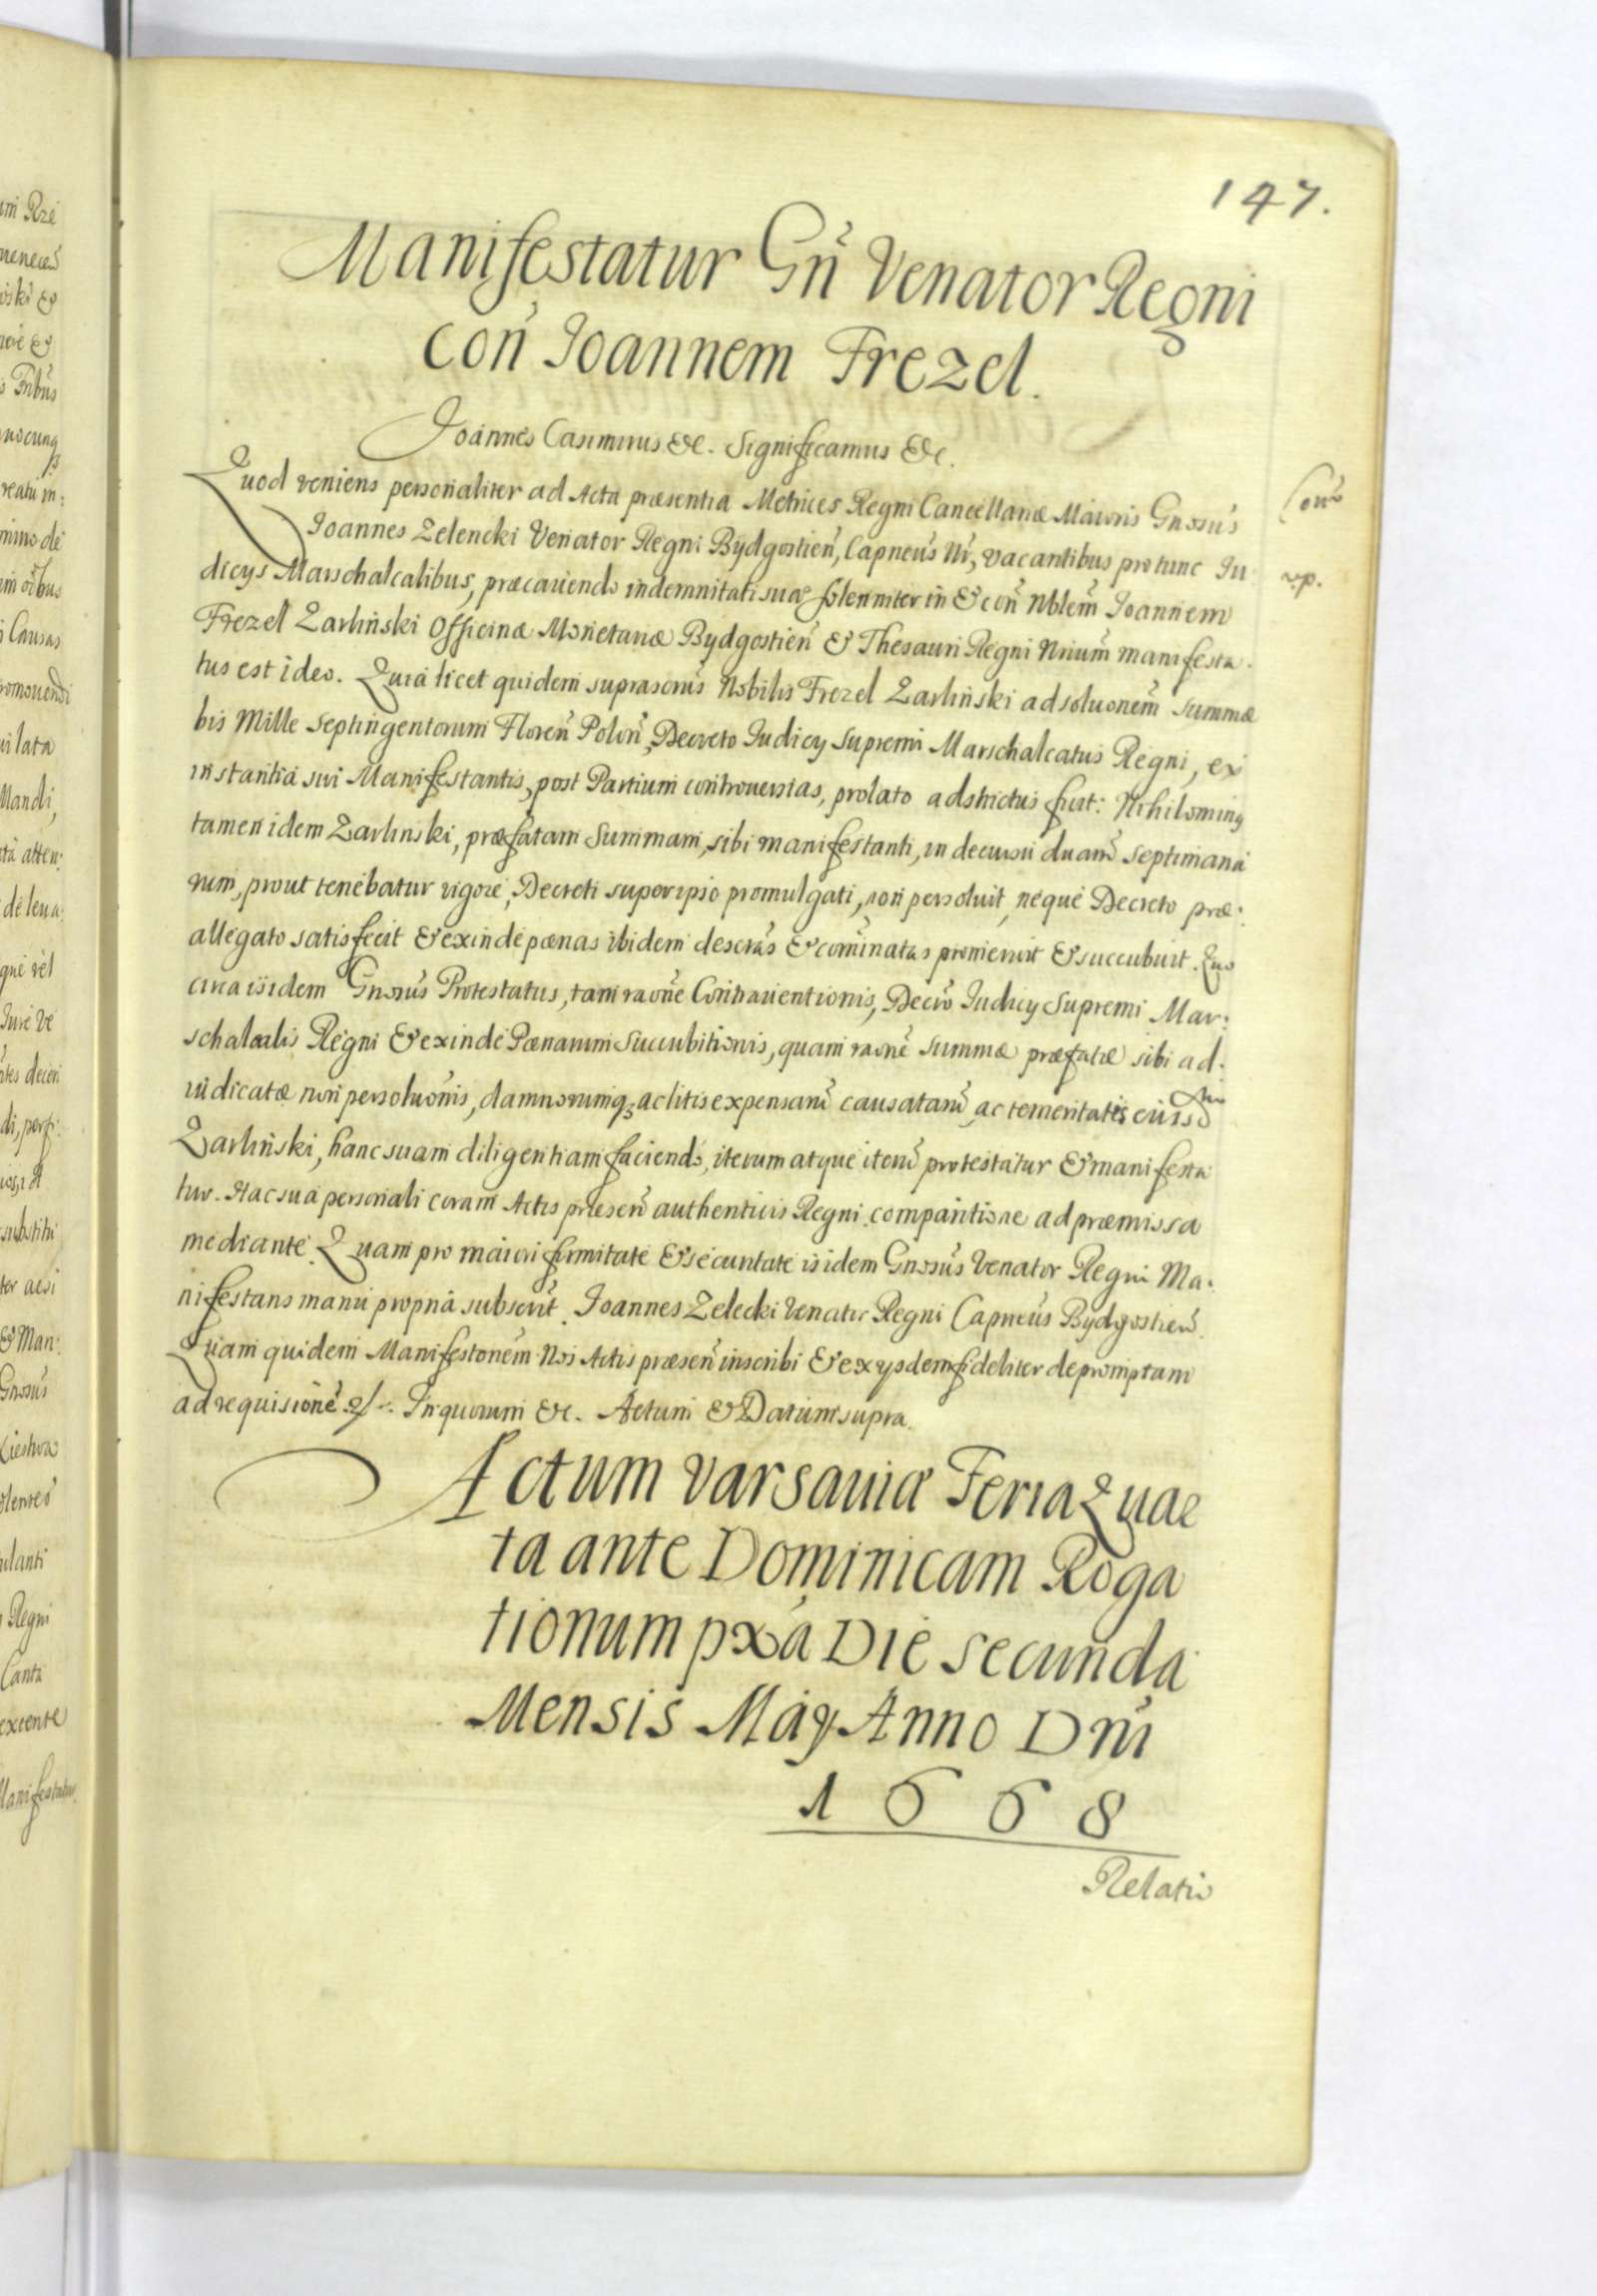 147.
Manifestatur Gñ Venator Regni
con̄ Joannem Frezel.
Joannes Casimirus &c. Significamus &c.
Quod veniens personaliter ad Acta præsentia Metrices Regni Cancellariæ Maioris Gnosus
Joannes Zelencki Venator Regni Bydgostien̄, Capneus Nr̄, vacantibus pro tunc Iu
dicys Marschalcalibus, præcavendo indemnitati suæ solenniter in & con̄ Nblem̄ Joannem
Frezel Zarliński Officinæ Monetariæ Bydgostien̄ & Thesauri Regni Nrium̄ manifesta.
tus est ideo. Quia licet quidem suprascrus Nobilis Frezel Zarliński ad soluonem̄ summæ
bis Mille Septingentorum Floren̄ Polon̄, Decreto Judicy Supremi Marschalcatus Regni, ex
instantia sui Manifestantis, post Partium controuersias, prolato adstrictus fuit: Nihilominq
tamen idem Zarlinski, præfatam Summam, sibi manifestanti, in decursu duarū Septimana
rum, prout tenebatur vigore, Decreti super ipso promulgati, non persoluit, neque Decreto præ:
allegato satisfecit & exinde pænas ibidem descras & cominatas promeruit & succubuit. Quo
circa iisdem Gnosus Protestatus, tam raone Contrauentionis, Decro Judicy Supremi Mar:
schalcalis Regni & exinde Pænarum succubitionis, quam raone Summæ præfatæ sibi ad.
iudicatæ non persoluonis, damnorumq3 ac litis expensarū causatarū, ac temeritatis eiusd
Zarliński, hanc suam diligentiam faciendo, iterum atque iterū protestatur & manifesta
tur. Hac sua personali coram Actis præsen̄ authenticis Regni comparitione ad præmissa
mediante. Quam pro maiori firmitate & securitate iisidem Gnosus Venator Regni Ma.
nifestans manu propria subscrit. Joannes Zelecki Venator Regni Capneus Bydgostien̄.
Quam quidem Manifestonem Nos Actis præsen̄ inscribi & ex ysdem fideliter depromptam
ad requisione In quorum &c. Actum & Datum supra.
Conō
rp.
Actum Varsauiæ Feria Quar
ta ante Dominicam Roga
tionum pxa Die secunda
Mensis May Anno Dñi
1668
Relatio